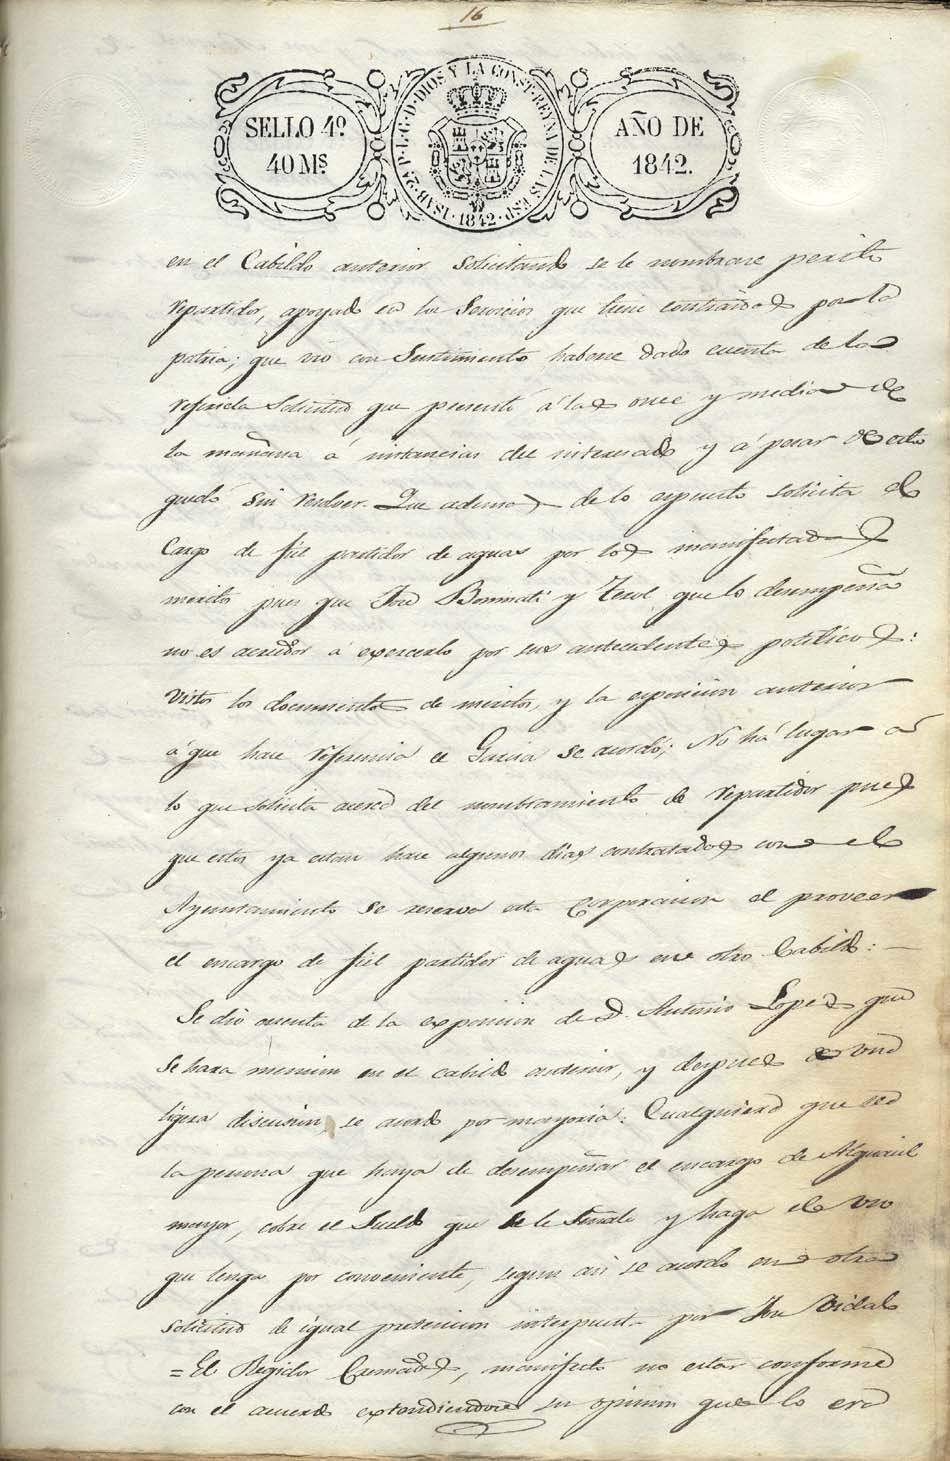 16
SELLO 4º. 40 Ms.
ISAB. 2ª P. L. G. D. DIOS Y LA CONST. REYNA DE LAS ESP. 1842.
AÑO DE 1842.
en el Cabildo anterior solicitando se le nombrase perito
repartidor, apoyado en los Servicios que tiene contraidos por la
patria; que vió con Sentimiento haberse dado cuenta de la
referida Solicitud que presentó á las once y media de
la mañana á instancias del interesado y á pesar de esto
quedó sin resolver. Que ademas de lo expuesto solicita el
Cargo de fiel partidor de aguas por los manifestados
meritos pues que José Bonmati y Terol que lo desempeña
no es acreedor á exercerlo por sus antecedentes politicos:
Vistos los documentos de meritos, y la exposicion anterior
á que hace referencia el Garcia se acordó; No há lugar á
lo que solicita acerca del nombramiento de repartidor pues
que estos ya estan hace algunos dias contratados con el
Ayuntamiento se reserva esta Corporacion el proveer
el encargo de fiel partidor de aguas en otro Cabildo: —
Se dió cuenta de la exposicion de D. Antonio Lopez que
se hara mencion en el cabildo anterior, y despues de una
ligera discusion, se acordó por mayoria: Cualquiera que sea
la persona que haya de desempeñar el encargo de Alguacil
mayor, cobre el Sueldo que se le Señale y haga el uso
que tenga por conveniente, segun asi se acordo en otra
solicitud de igual pretension interpuesta por José Vidal
= El Regidor manifestó no estar conforme
con el acuerdo extendiendose su opinion que lo era